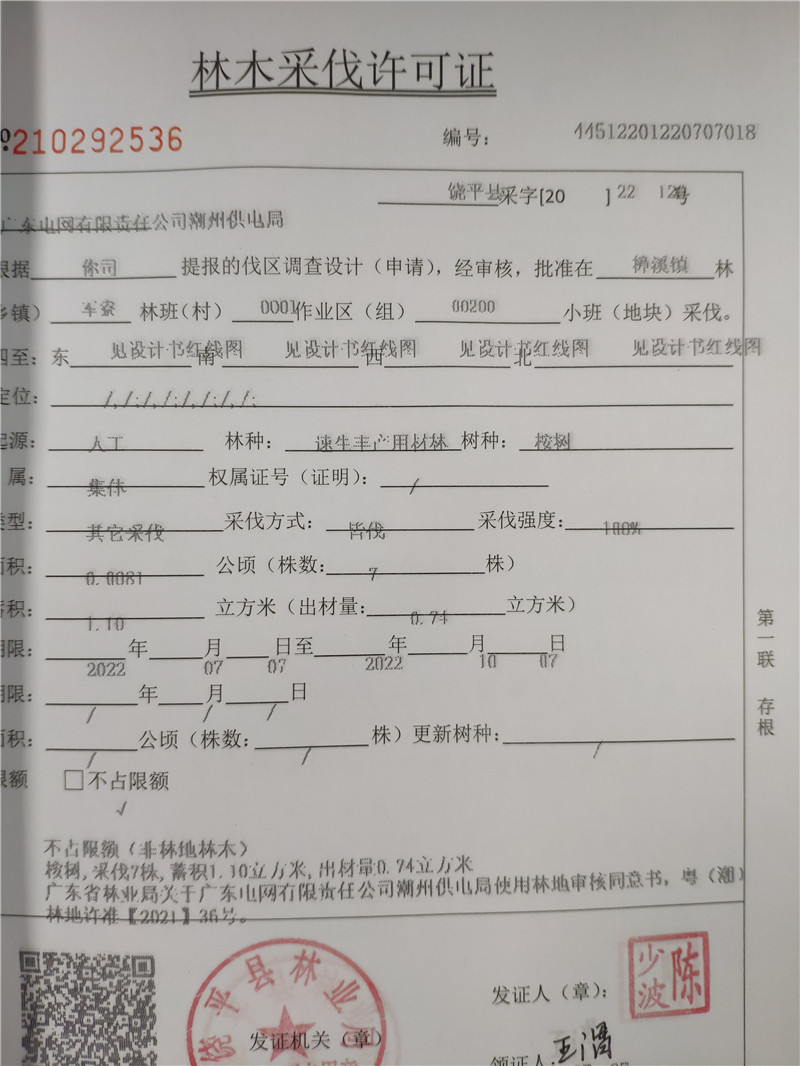 林木采伐许可证
210292536
编号：
445122012207070​18
饶平县采字[20 ]22 129号
广东电网有限责任公司潮州供电局
根据 你司 提报的伐区调查设计（申请），经审核，批准在 樟溪镇 林
乡镇） 军寮 林班（村） 0001 作业区（组） 00200 小班（地块）采伐。
四至：东 见设计书红线图 南 见设计书红线图 西 见设计书红线图 北 见设计书红线图
定位： /,/;/,/;/,/;/,/;
起源： 人工 林种： 速生丰产用材林 树种： 桉树
属： 集体 权属证号（证明）： /
类型： 其它采伐 采伐方式： 皆伐 采伐强度： 100%
面积： 0.0081 公顷（株数： 7 株）
蓄积： 1.10 立方米（出材量： 0.74 立方米）
期限： 2022 年 07 月 07 日至 2022 年 10 月 07 日
期限： / 年 / 月 / 日
面积： / 公顷（株数： / 株）更新树种： /
限额 □不占限额
√
不占限额（非林地林木）
桉树,采伐7株,蓄积1.10立方米,出材量0.74立方米
广东省林业局关于广东电网有限责任公司潮州供电局使用林地审核同意书，粤（潮）
林地许准【2021】36号。
第一联 存根
饶平县林业局
发证机关（章）
发证人（章）：
陈少波
领证人：